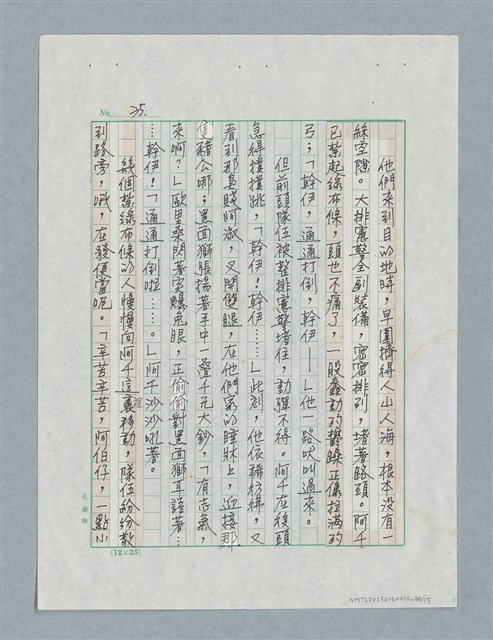 No. 35.
他們來到目的地時，早圍擠得人山人海，根本沒有一
絲空隙。大排憲警全副裝備，密密排列，堵著路頭。阿千
已紮起綠布條，頭也不痛了，一股蠢動的鬱躁正像拉滿的
弓；「幹伊，通通打倒，幹伊——」他一路吠叫過來。
但前頭隊伍被整排憲警堵住，動彈不得。阿千在後頭
急得撲撲跳，「幹伊！幹伊……」此刻，他依稀彷彿，又
看到那臭賤阿淑，又開雙腿，在他們家的睡牀上，迎接那
隻豬公哪；黑面獅張揚著手中一疊千元大鈔，「有志氣，
來啊？」歐里桑閃著突爆兔眼，正偷偷對黑面獅耳語著…
…幹伊！「通通打倒啦……。」阿千沙沙吼著。
幾個紮綠布條的人慢慢向阿千這裏移動，隊伍紛紛散
到路旁，哦，在發便當呢。「辛苦辛苦，阿伯仔，一點小
孔雀牌
(12×25)
NMTL20230160030_38/55